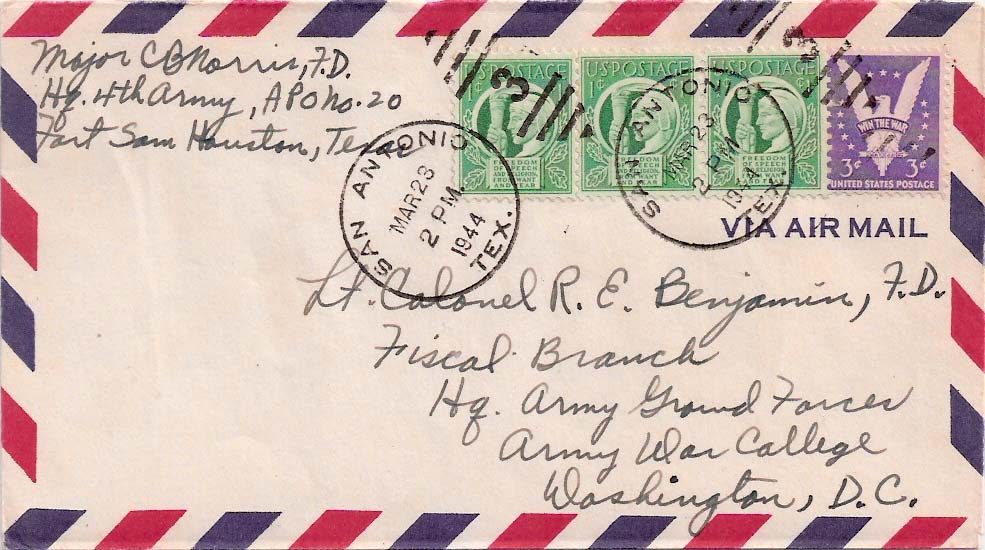 Major C B Norris, F.D.
Hq. 4th Army, APO No. 20
Fort Sam Houston, Texas
U.S. POSTAGE
1¢
FREEDOM
OF SPEECH
AND RELIGION,
FROM WANT
AND FEAR
U.S. POSTAGE
1¢
FREEDOM
OF SPEECH
AND RELIGION,
FROM WANT
AND FEAR
U.S. POSTAGE
1¢
FREEDOM
OF SPEECH
AND RELIGION,
FROM WANT
AND FEAR
WIN THE WAR
3¢ 3¢
UNITED STATES POSTAGE
3
3
SAN ANTONIO TEX.
MAR 23
2 PM
1944
SAN ANTONIO TEX.
MAR 23
2 PM
1944
VIA AIR MAIL
Lt. Colonel R. E. Benjamin, F.D.
Fiscal Branch
Hq. Army Ground Forces
Army War College
Washington, D.C.